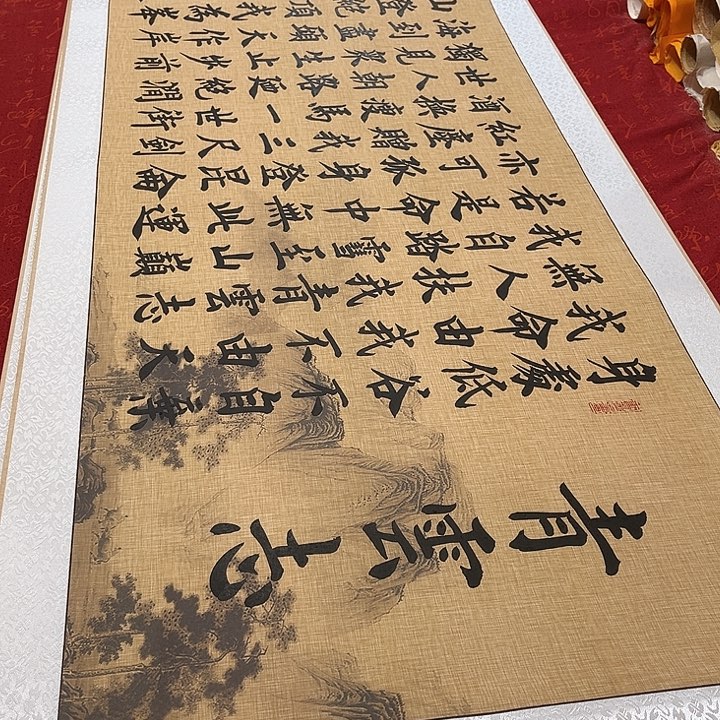 青雲志
身處低谷不自棄
我命由我不由天
無人扶我青雲志
我自踏雪至山巔
若是命中無此運
亦可孤身登昆侖
紅塵贈我三尺劍
酒操瘦馬一世街
世人朝路更絕澗
獨見眾生止步前
海到盡頭天作岸
山登絕頂我為峯